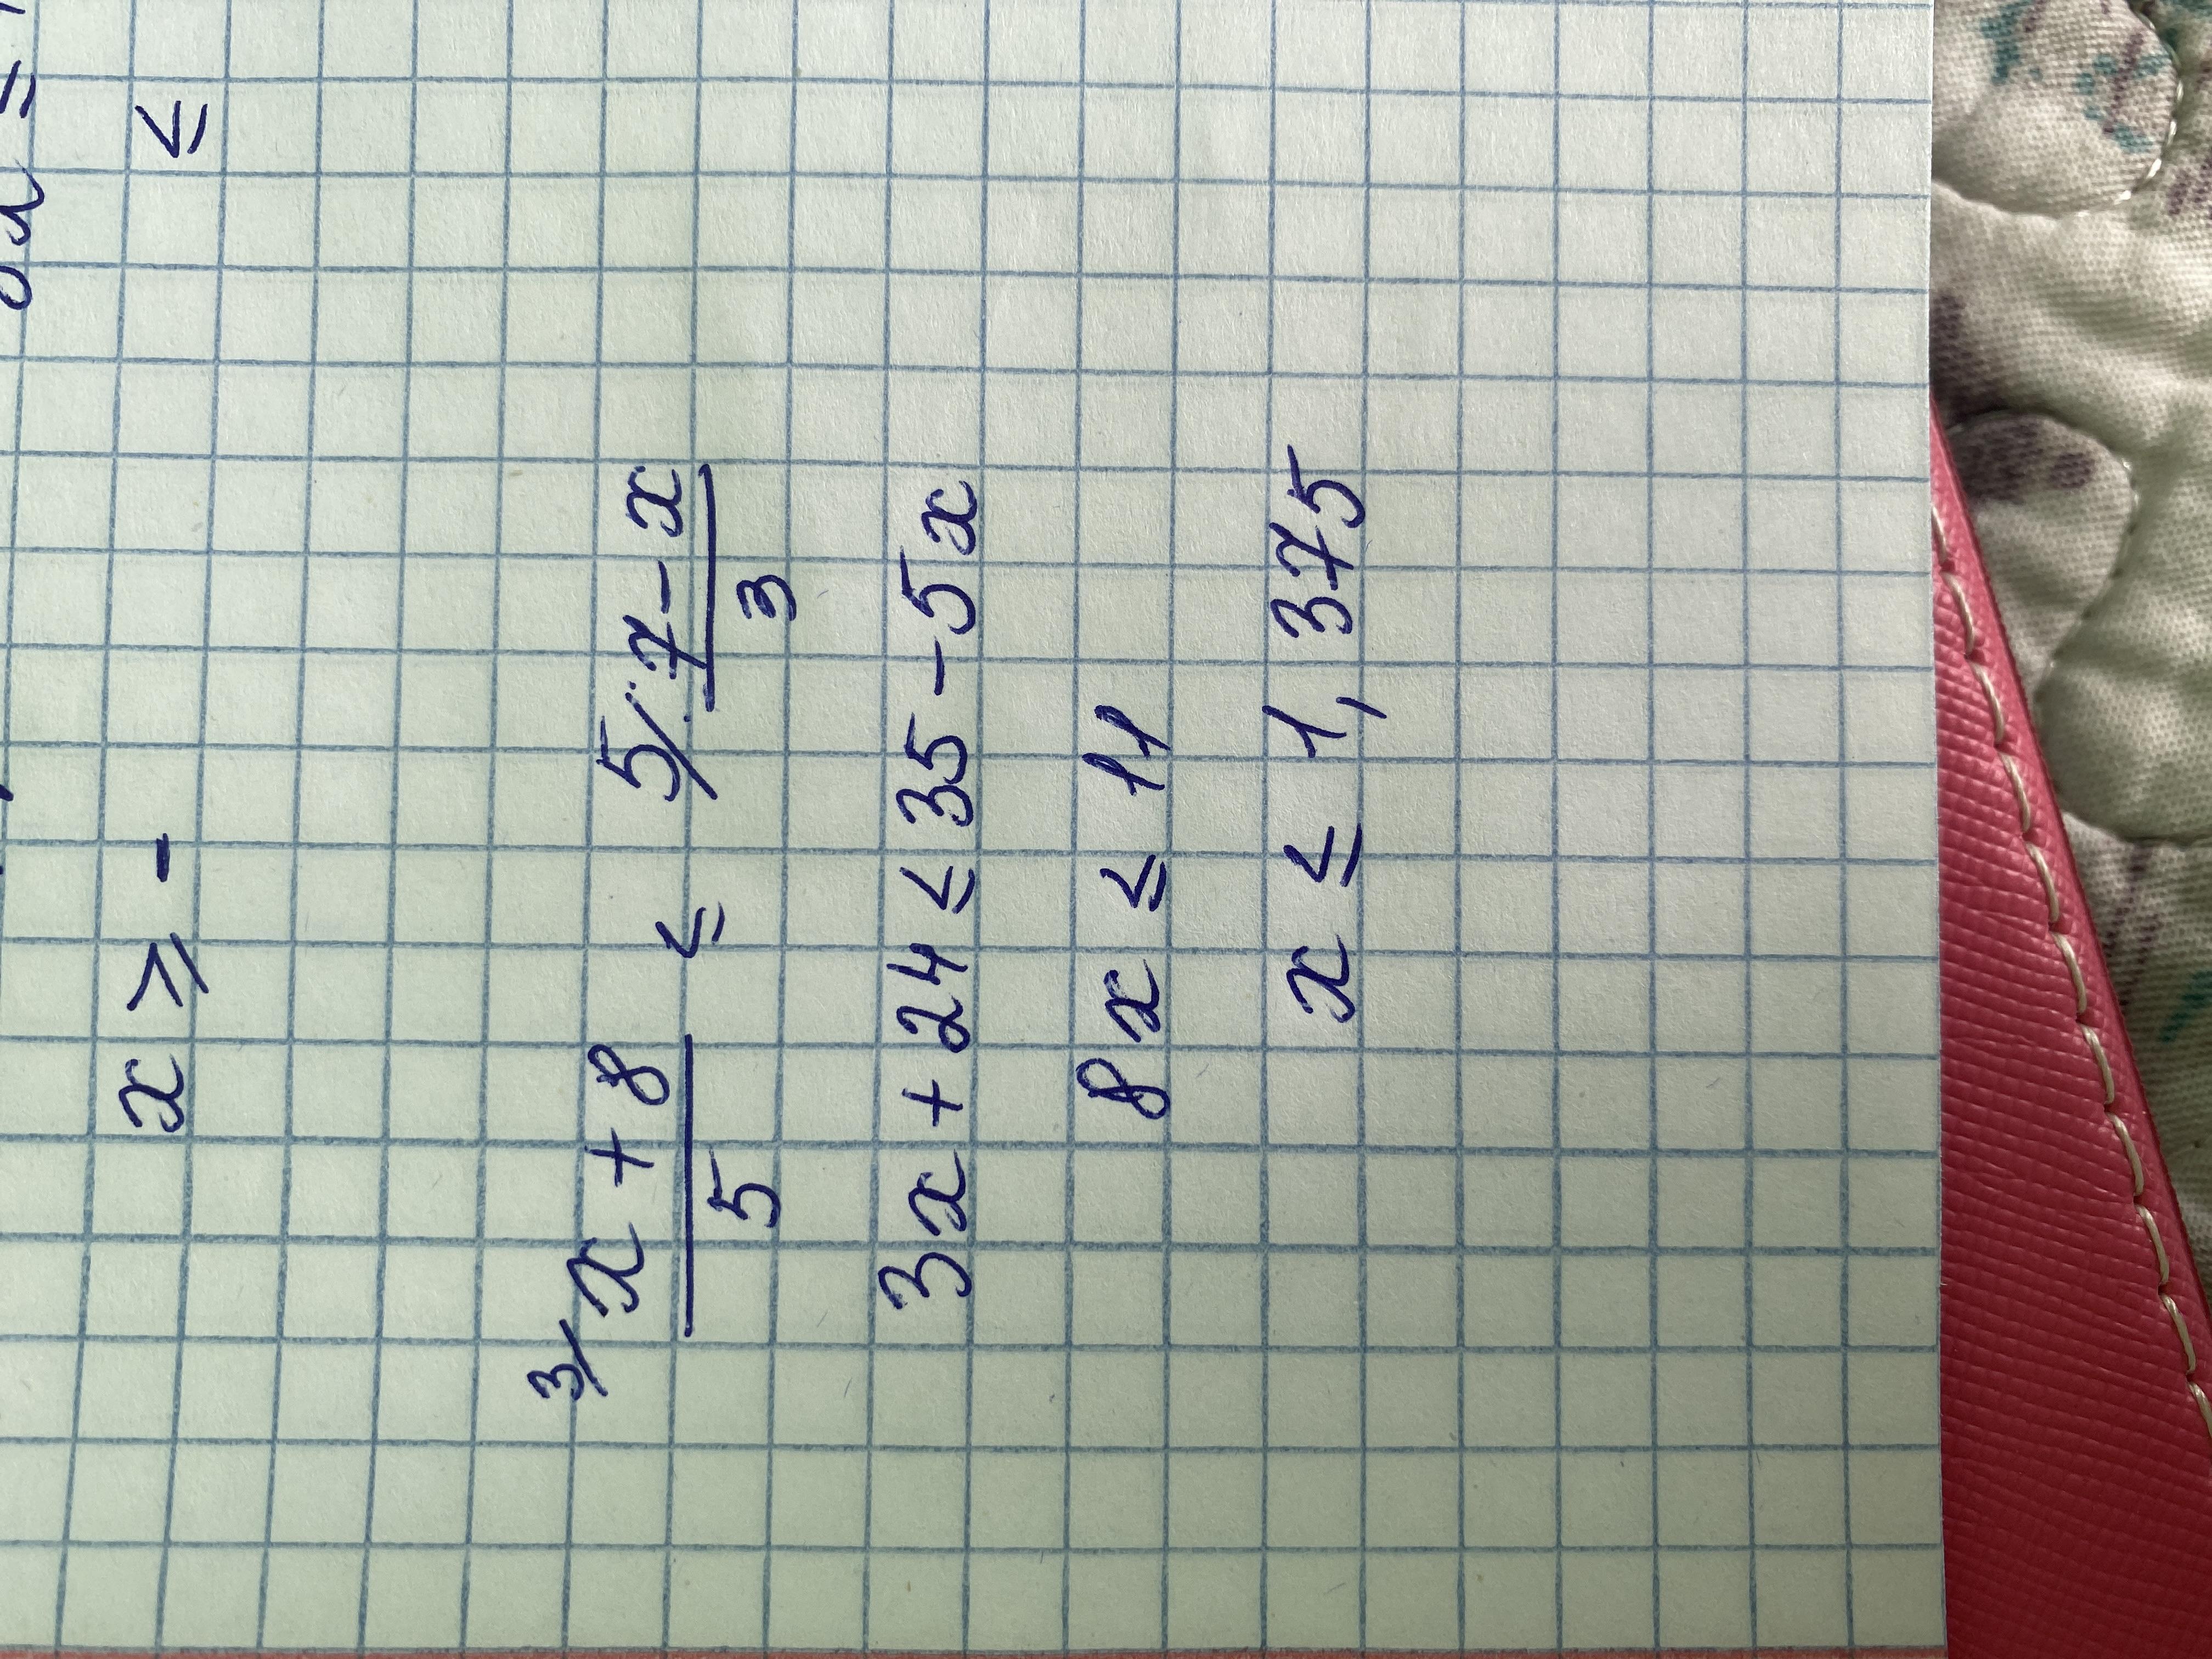 x ≥ - ≤
3/ x + 8 / 5 ≤ 5/ 7 - x / 3
3x + 24 ≤ 35 - 5x
8x ≤ 11
x ≤ 1,375